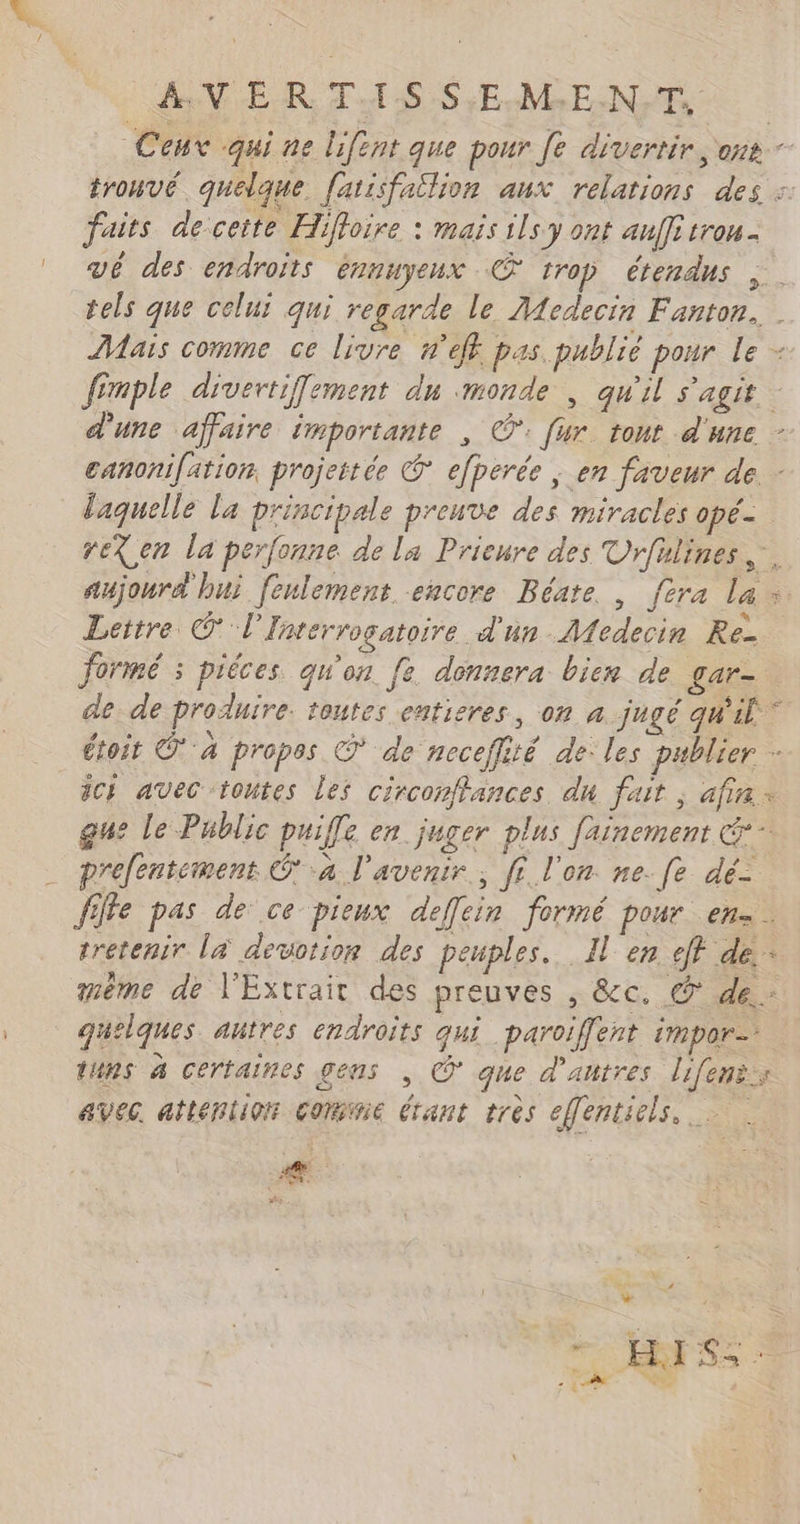 AVERTISSEMENT.
Ceux qui ne lisent que pour se divertir, ont
trouvé quelque satisfaction aux relations des
faits de cette Histoire : mais ils y ont aussi trou-
vé des endroits ennuyeux & trop étendus ,
tels que celui qui regarde le Medecin Fanton.
Mais comme ce livre n'est pas publié pour le
simple divertissement du monde , qu'il s'agit
d'une affaire importante , & sur tout d'une
canonisation projettée & esperée , en faveur de
laquelle la principale preuve des miracles opé-
rez en la personne de la Prieure des Ursulines ,
aujourd'hui seulement encore Béate , sera la
Lettre & l'Interrogatoire d'un Medecin Re-
formé ; piéces qu'on se donnera bien de gar-
de de produire toutes entieres, on a jugé qu'il
étoit & à propos & de necessité de les publier
ici avec toutes les circonstances du fait , afin
que le Public puisse en juger plus sainement &
presentement & à l'avenir , si l'on ne se dé-
siste pas de ce pieux dessein formé pour en-
tretenir la devotion des peuples. Il en est de
même de l'Extrait des preuves , &c. & de
quelques autres endroits qui paroissent impor-
tuns à certaines gens , & que d'autres lisent
avec attention comme étant très essentiels.
HIS-